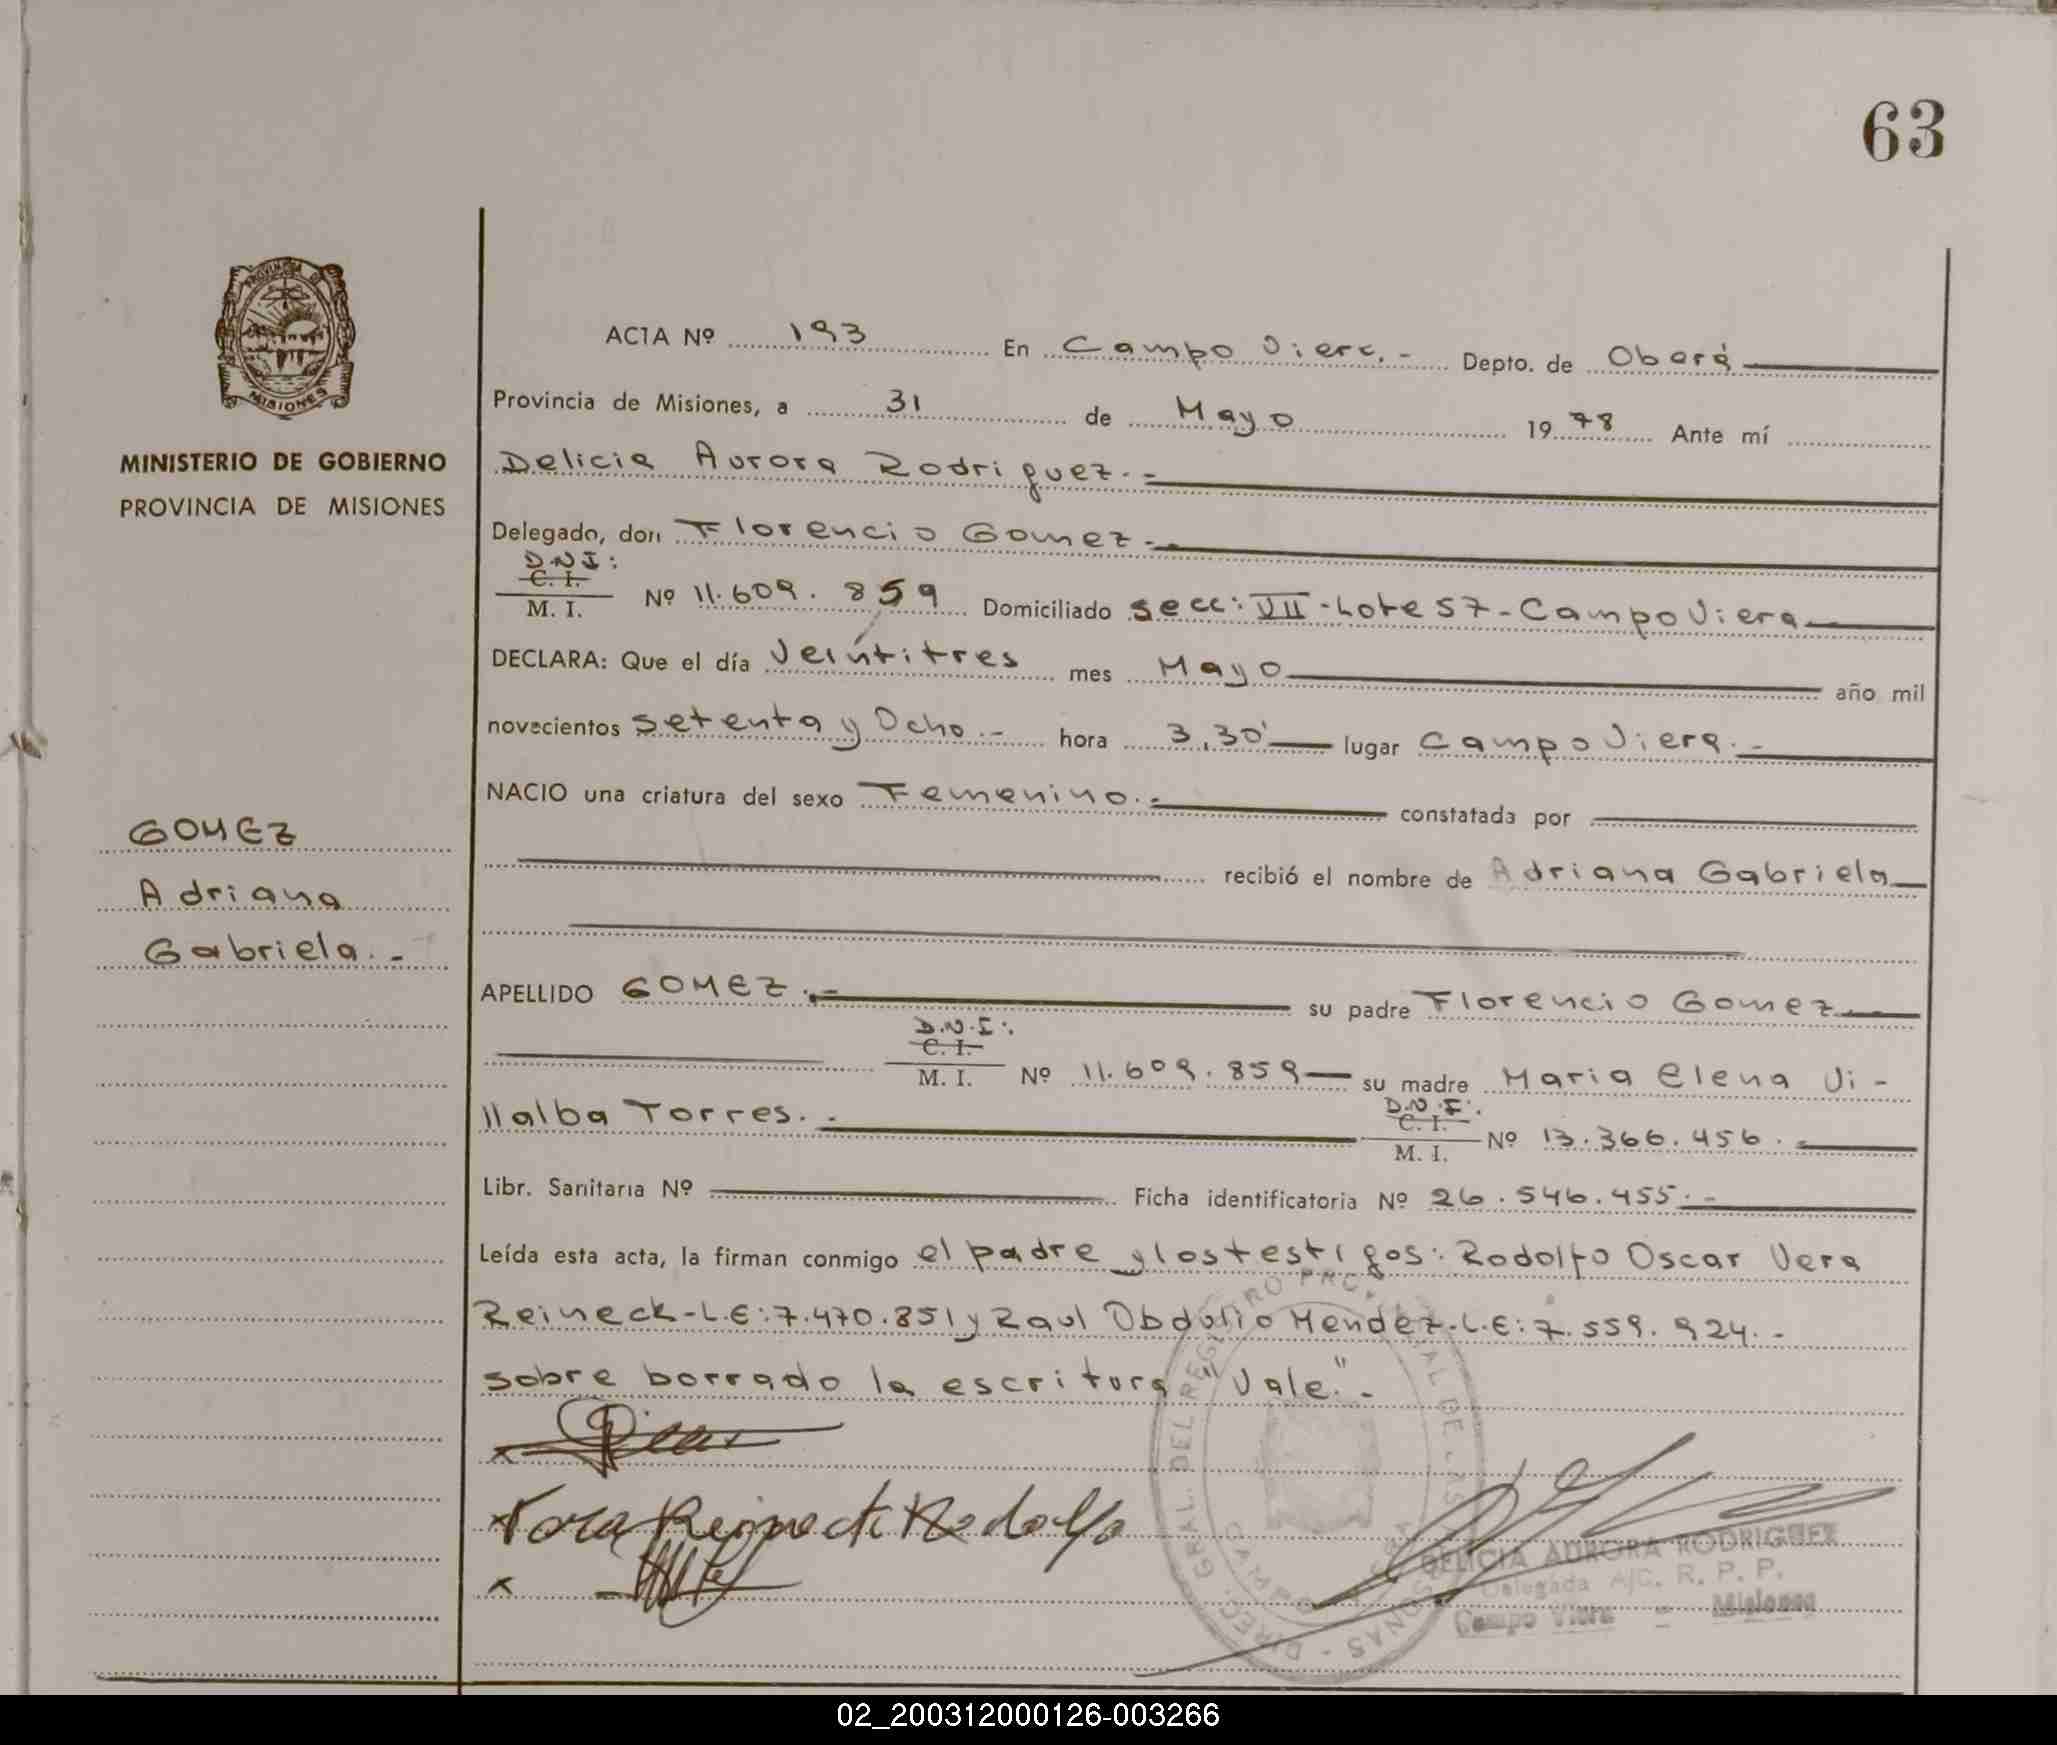 63
PROVINCIA DE
MISIONES
MINISTERIO DE GOBIERNO
PROVINCIA DE MISIONES
ACTA Nº 193 En Campo Viera.- Depto. de Oberá
Provincia de Misiones, a 31 de Mayo 1978 Ante mí
Delicia Aurora Rodriguez.-
Delegado, don Florencio Gomez.-
D.N.I:
C. I.
M. I. Nº 11.609.859 Domiciliado secc: VII-Lote 57-Campo Viera
DECLARA: Que el día Veintitres mes Mayo año mil
novecientos setenta y Ocho.- hora 3,30' lugar Campo Viera.-
NACIO una criatura del sexo Femenino.- constatada por
recibió el nombre de Adriana Gabriela
GOMEZ
Adriana
Gabriela.-
APELLIDO GOMEZ.- su padre Florencio Gomez.-
D.N.I:
C. I.
M. I. Nº 11.609.859 su madre Maria Elena Vi-
llalba Torres.-
D.N.I:
C. I.
M. I. Nº 13.366.456.-
Libr. Sanitaria Nº Ficha identificatoria Nº 26.546.455.-
Leída esta acta, la firman conmigo el padre y los testigos: Rodolfo Oscar Vera
Reineck-L.E:7.470.851 y Raul Obdulio Mendez-L.E:7.559.924.-
sobre borrado la escritura "Vale".-
Vera Reineck Rodolfo
DIREC. GRAL. DEL REGISTRO PROVINCIAL DE LAS PERSONAS
DELICIA AURORA RODRIGUEZ
Delegada A/C. R. P. P.
Campo Viera - Misiones
02_200312000126-003266